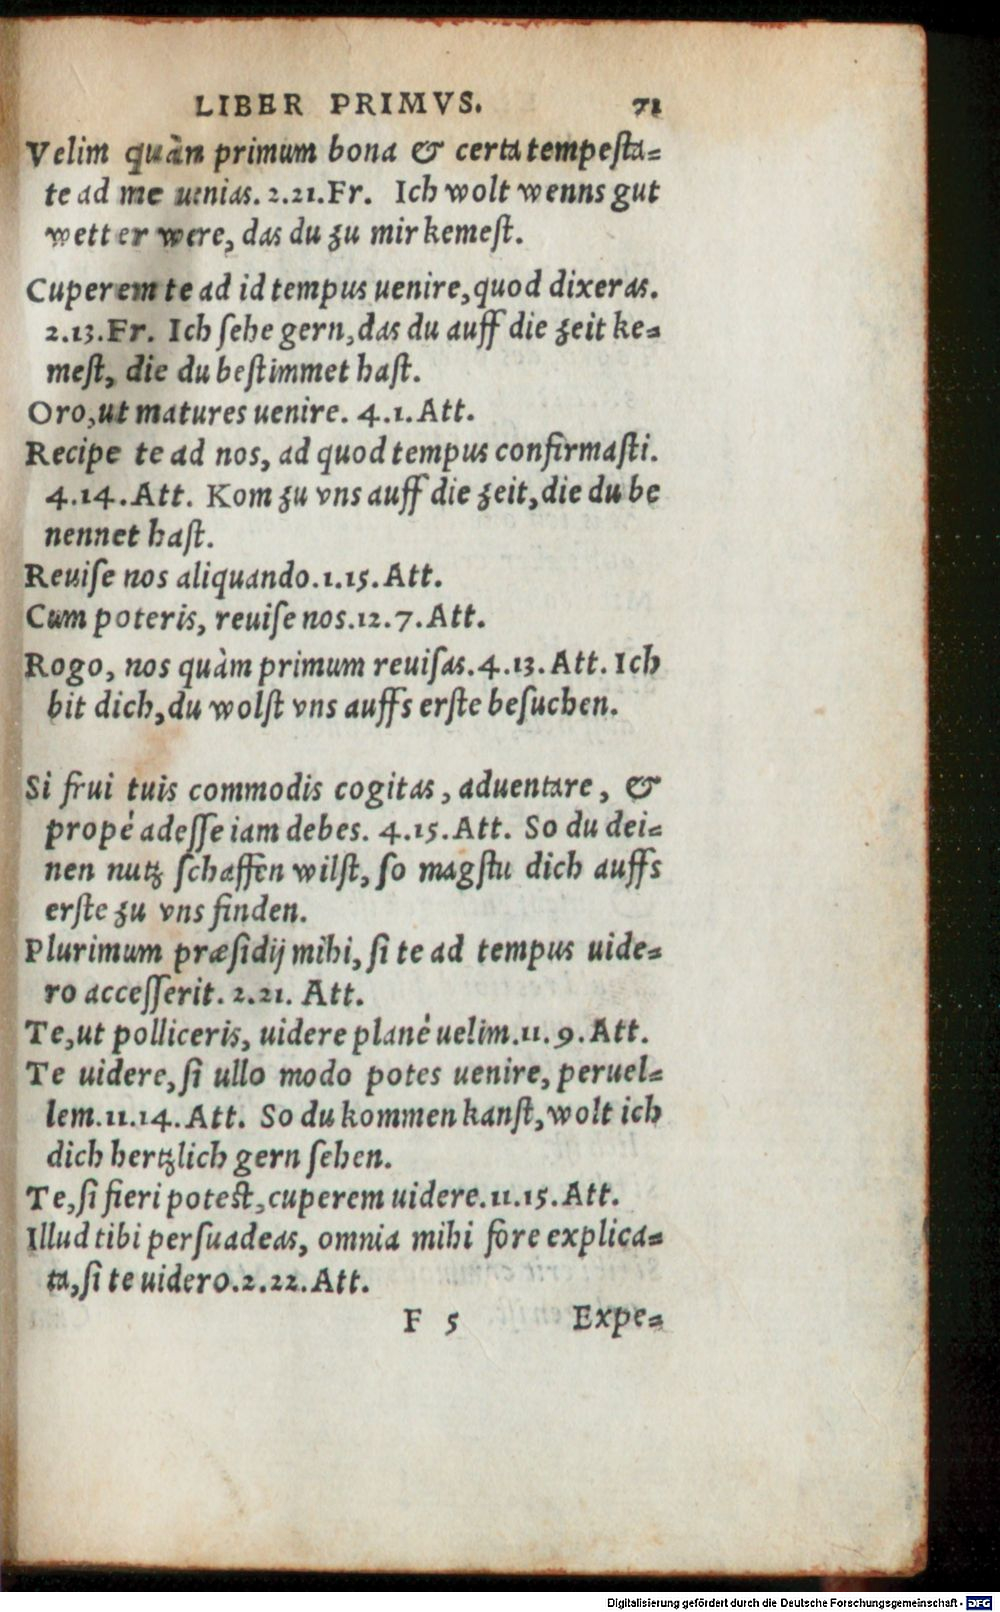 LIBER PRIMVS. 71
Velim quàm primum bona & certa tempesta=
te ad me uenias. 2.21.Fr. Ich wolt wenns gut
wetter were, das du zu mir kemest.
Cuperem te ad id tempus uenire, quod dixeras.
2.13.Fr. Ich sehe gern, das du auff die zeit ke=
mest, die du bestimmet hast.
Oro, ut matures uenire. 4.1.Att.
Recipe te ad nos, ad quod tempus confirmasti.
4.14.Att. Kom zu vns auff die zeit, die du be
nennet hast.
Reuise nos aliquando.1.15.Att.
Cum poteris, reuise nos.12.7.Att.
Rogo, nos quàm primum reuisas.4.13.Att. Ich
bit dich, du wolst vns auffs erste besuchen.
Si frui tuis commodis cogitas, aduentare, &
propè adesse iam debes. 4.15.Att. So du dei=
nen nutz schaffen wilst, so magstu dich auffs
erste zu vns finden.
Plurimum præsidij mihi, si te ad tempus uide=
ro accesserit. 2.21. Att.
Te, ut polliceris, uidere planè uelim.11.9.Att.
Te uidere, si ullo modo potes uenire, peruel=
lem.11.14.Att. So du kommen kanst, wolt ich
dich hertzlich gern sehen.
Te, si fieri potest, cuperem uidere.11.15.Att.
Illud tibi persuadeas, omnia mihi fore explica=
ta, si te uidero.2.22.Att.
F 5 Expe=
Digitalisierung gefördert durch die Deutsche Forschungsgemeinschaft - DFG